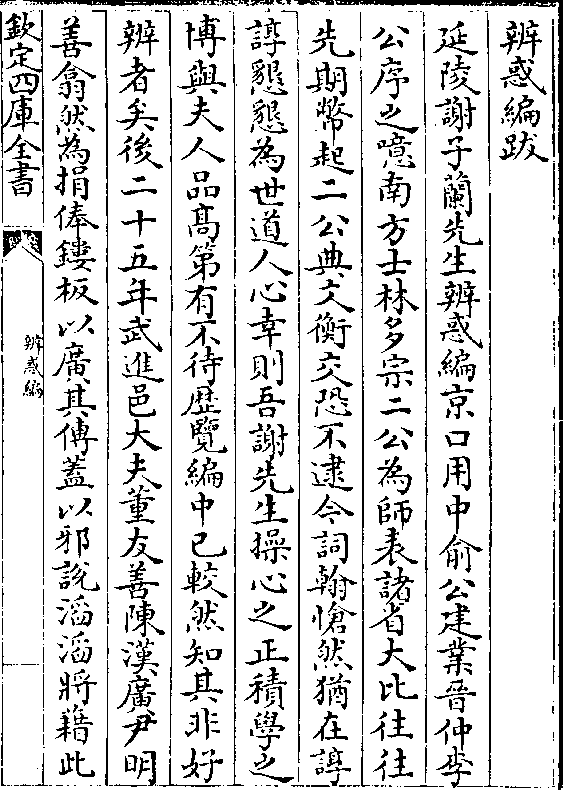 辨惑編跋
延陵謝子蘭先生辨惑編京口用中俞公建業晉仲李
公序之噫南方士林多宗二公為師表諸省大比往往
先期幣起二公典文衡交恐不逮今詞翰愴然猶在諄
諄懇懇為世道人心幸則吾謝先生操心之正積學之
博與夫人品髙第有不待歴覽編中已較然知其非好
辨者矣後二十五年武進邑大夫董友善陳漢廣尹明
善翕然為捐俸鏤板以廣其傳蓋以邪說滔滔將藉此
欽定四庫全書
辨惑編